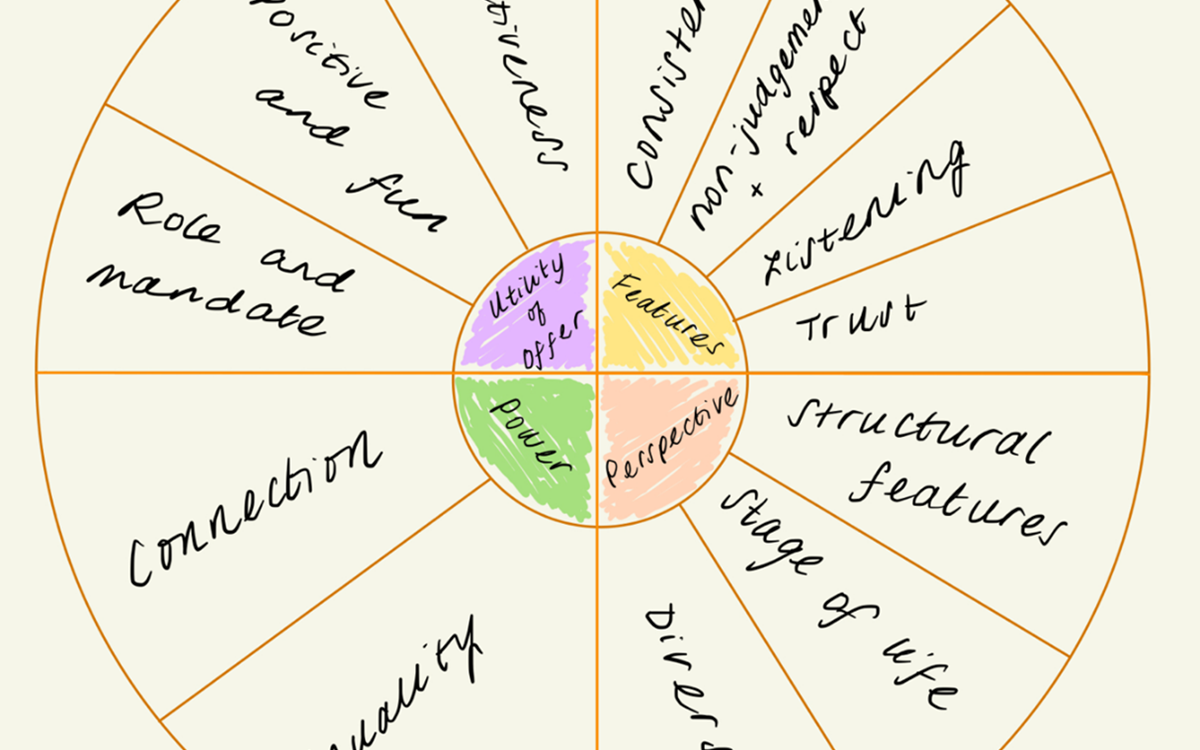 positive
and
fun
tiveness
Consiste
non-judgemen
+ respect
Listening
Trust
Role and
mandate
Utility
of
Offer
Features
Power
Perspective
Structural
features
Stage
of
life
Connection
uality
Divers